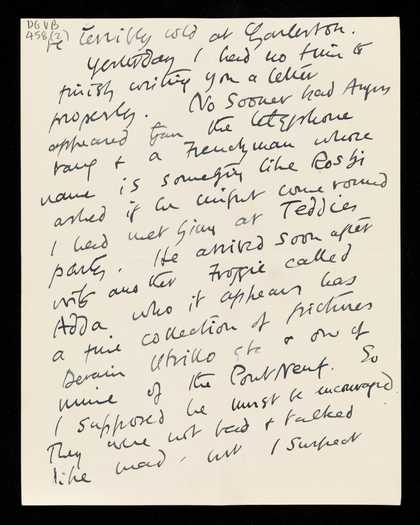 DGVB
458(2)
be terribly cold at Charleston.
Yesterday I had no time to
finish writing you a letter
properly. No sooner had Angus
appeared than the telephone
rang & a Frenchman whose
name is something like Rosji
asked if he might come round
I had met him at Teddies
party. He arrived soon after
with another Froggie called
Adda who it appears has
a fine collection of pictures
Derain Utrillo etc & one of
mine of the Pont Neuf. So
I supposed he must be encouraged.
They were not bad & talked
like mad, but I suspect